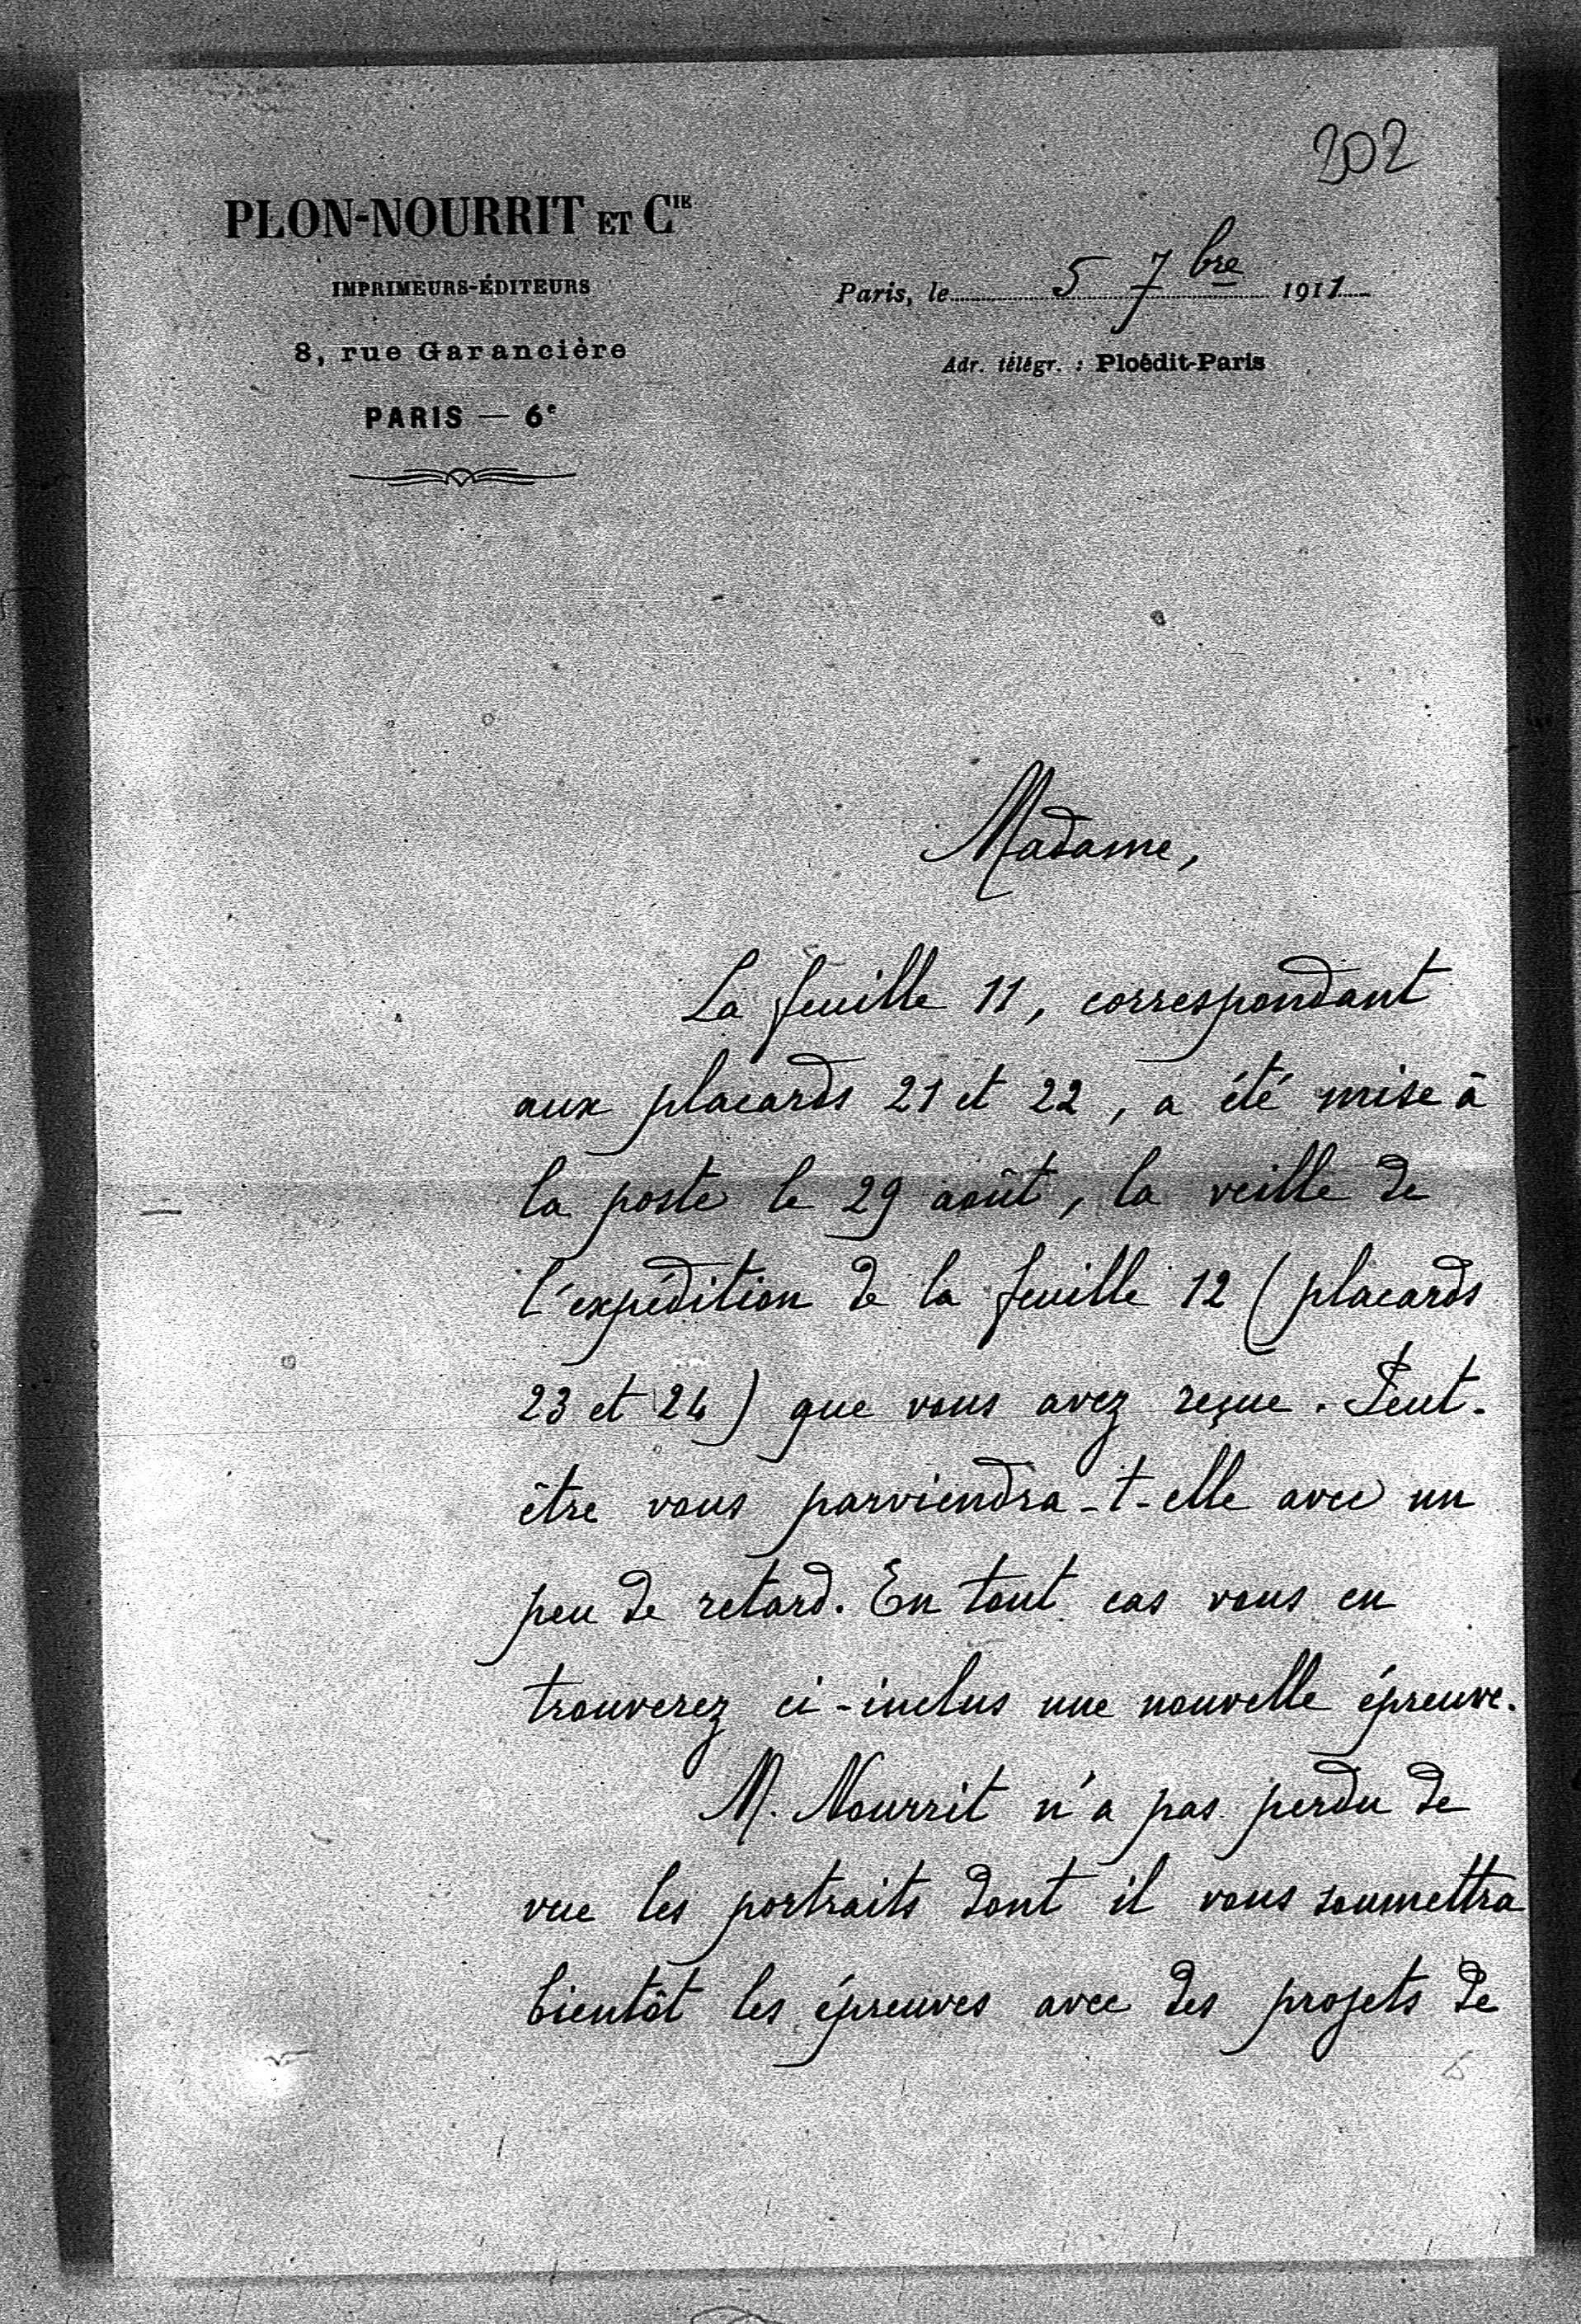 202
PLON-NOURRIT ET CIE
IMPRIMEURS-ÉDITEURS
8, rue Garancière
PARIS — 6e
Paris, le 5 7bre 1911
Adr. télégr. : Ploédit-Paris
Madame,
La feuille 11, correspondant
aux placards 21 et 22, a été mise à
la poste le 29 août, la veille de
l'expédition de la feuille 12 (placards
23 et 24) que vous avez reçue. Peut-
être vous parviendra-t-elle avec un
peu de retard. En tout cas vous en
trouverez ci-inclus une nouvelle épreuve.
M. Nourrit n'a pas perdu de
vue les portraits dont il vous soumettra
bientôt les épreuves avec des projets de